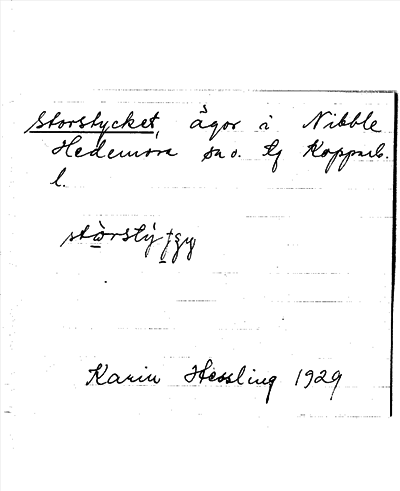 Storstycket, ägor i Nibble
Hedemora sn o. tg Kopparb.
l.
Karin Hessling 1929